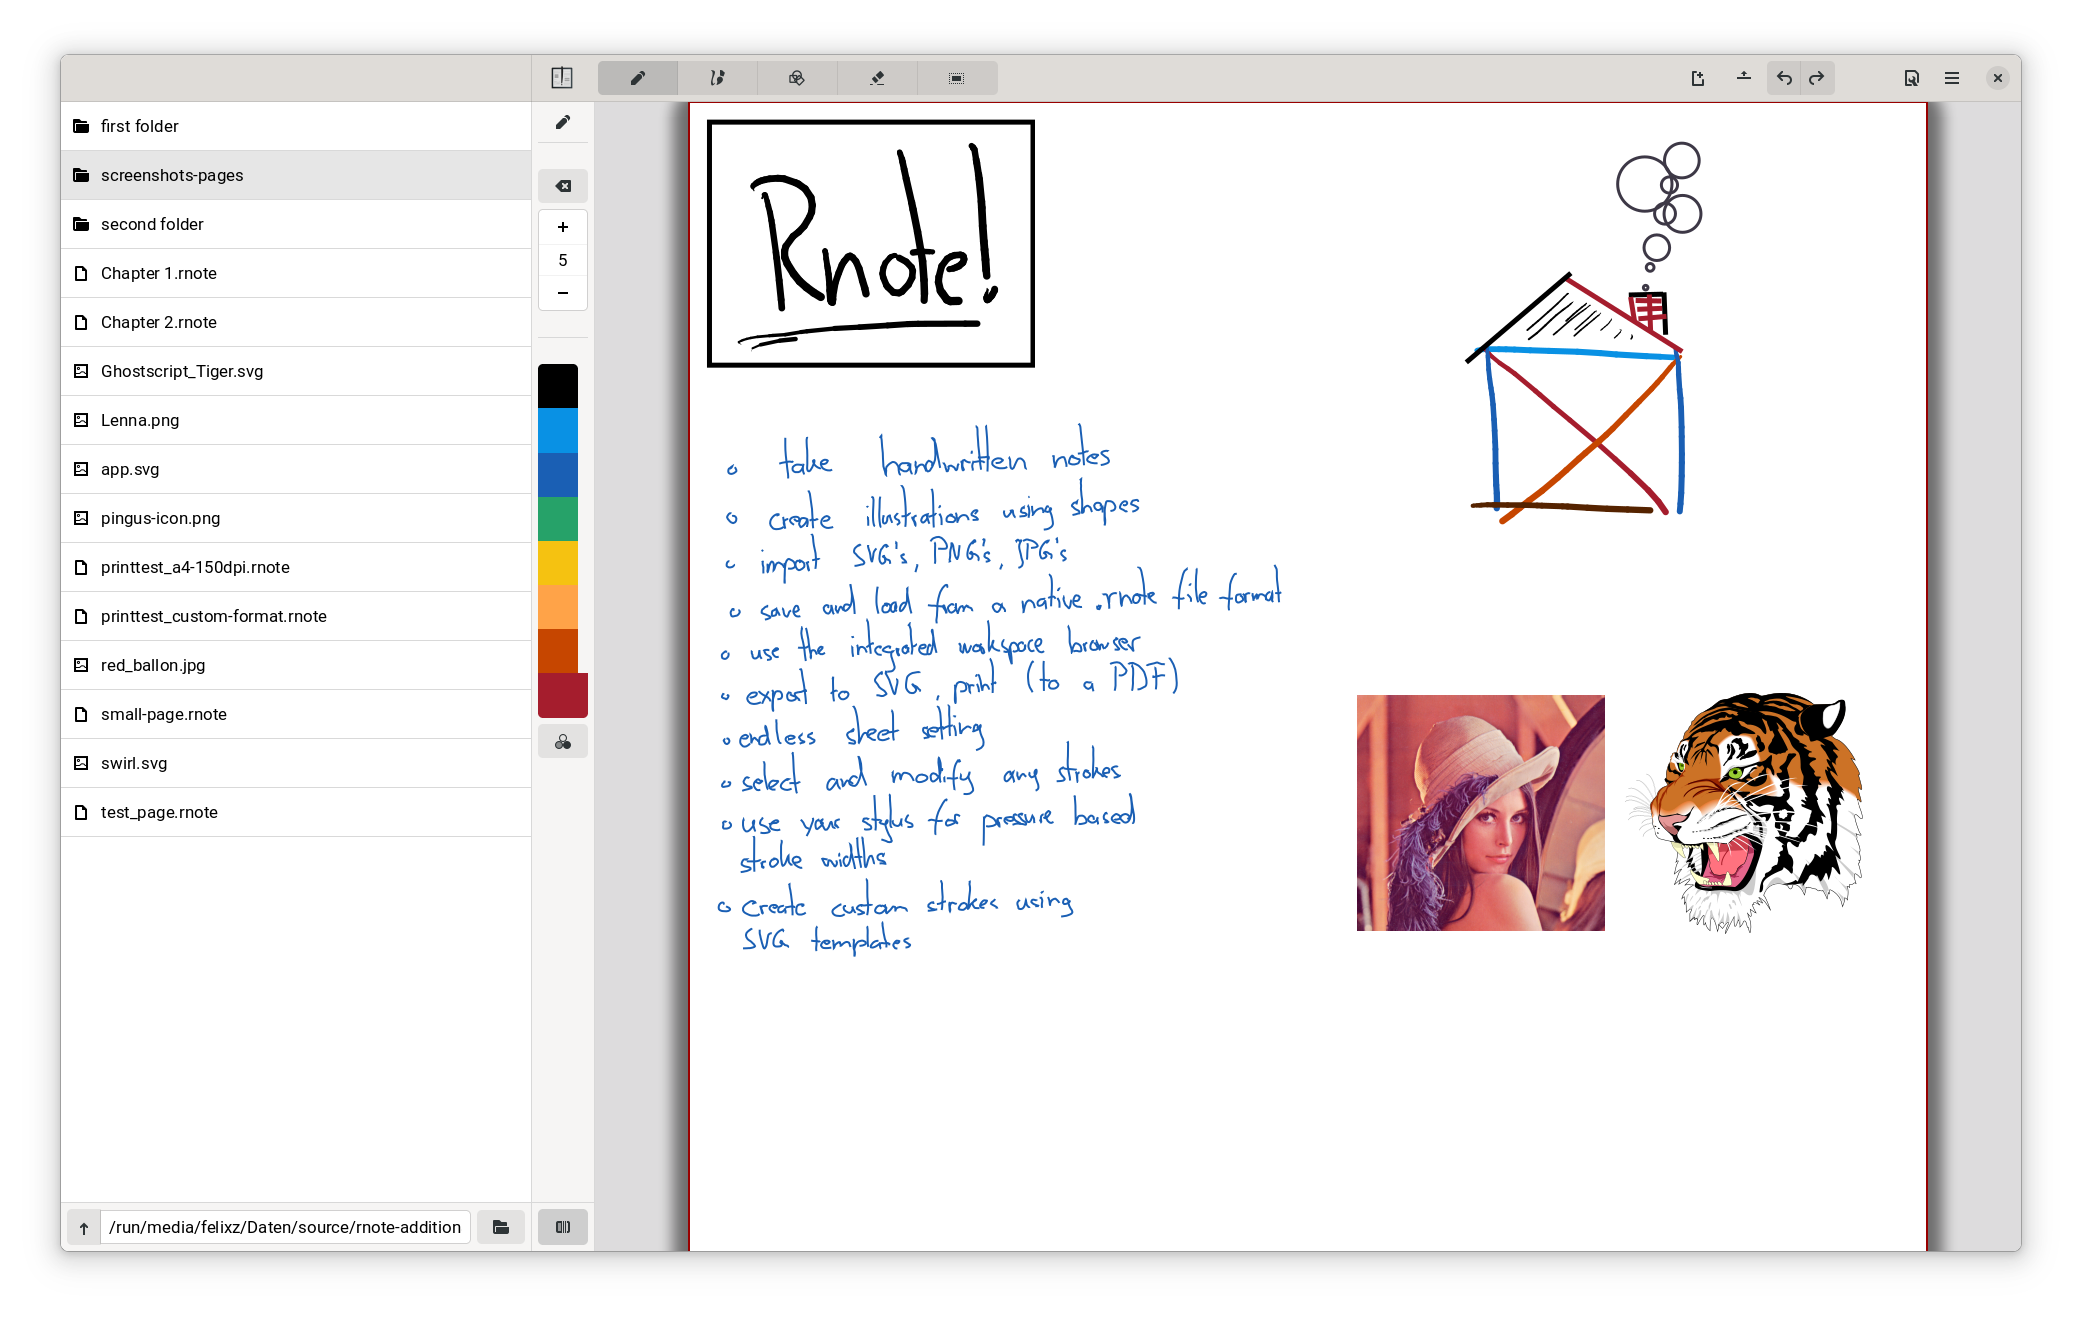 first folder
screenshots-pages
second folder
Chapter 1.rnote
Chapter 2.rnote
Ghostscript_Tiger.svg
Lenna.png
app.svg
pingus-icon.png
printtest_a4-150dpi.rnote
printtest_custom-format.rnote
red_ballon.jpg
small-page.rnote
swirl.svg
test_page.rnote
/run/media/felixz/Daten/source/rnote-addition
+
5
−
Rnote!
take handwritten notes
create illustrations using shapes
import SVG's, PNG's, JPG's
save and load from a native .rnote file format
use the integrated workspace browser
export to SVG, print (to a PDF)
endless sheet setting
select and modify any strokes
use your stylus for pressure based
stroke widths
Create custom strokes using
SVG templates